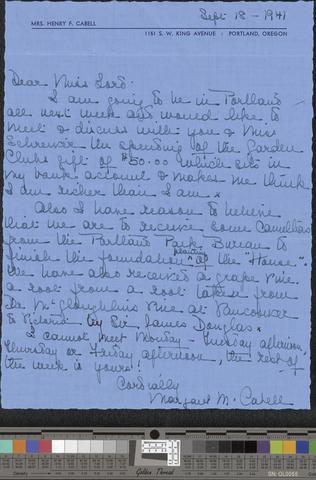 Sept 18 - 1941
MRS. HENRY F. CABELL
1151 S. W. KING AVENUE : PORTLAND, OREGON
Dear Miss Lord -
I am going to be in Portland
all next week and would like to
meet & discuss with you & Miss
the spending of the Garden
Clubs gift of $50.00 which sits in
my bank account & makes me think
I am richer than I am.
Also I have reason to believe
that we are to receive some Camellias
from the Portland Park Bureau to
finish the foundation planting of the "House".
We have also received a grape vine.
a root from a root taken from
Dr McLoughlin's vine at Vancouver
to Victoria by Sir James Douglas.
I cannot meet Monday - Tuesday afternoon,
Thursday or Friday afternoon, the rest of
the week is yours!
Cordially
Margaret M. Cabell
Golden Thread